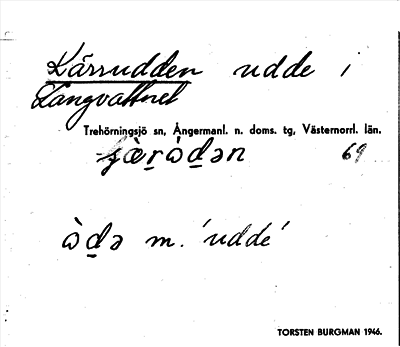 Kärrudden udde i
Långvattnet
Trehörningsjö sn, Ångermanl. n. doms. tg, Västernorrl. län.
-çæ̀r̠ɑ̀d̠ən 69
ɑ̀d̠ə m. 'udde'
TORSTEN BURGMAN 1946.